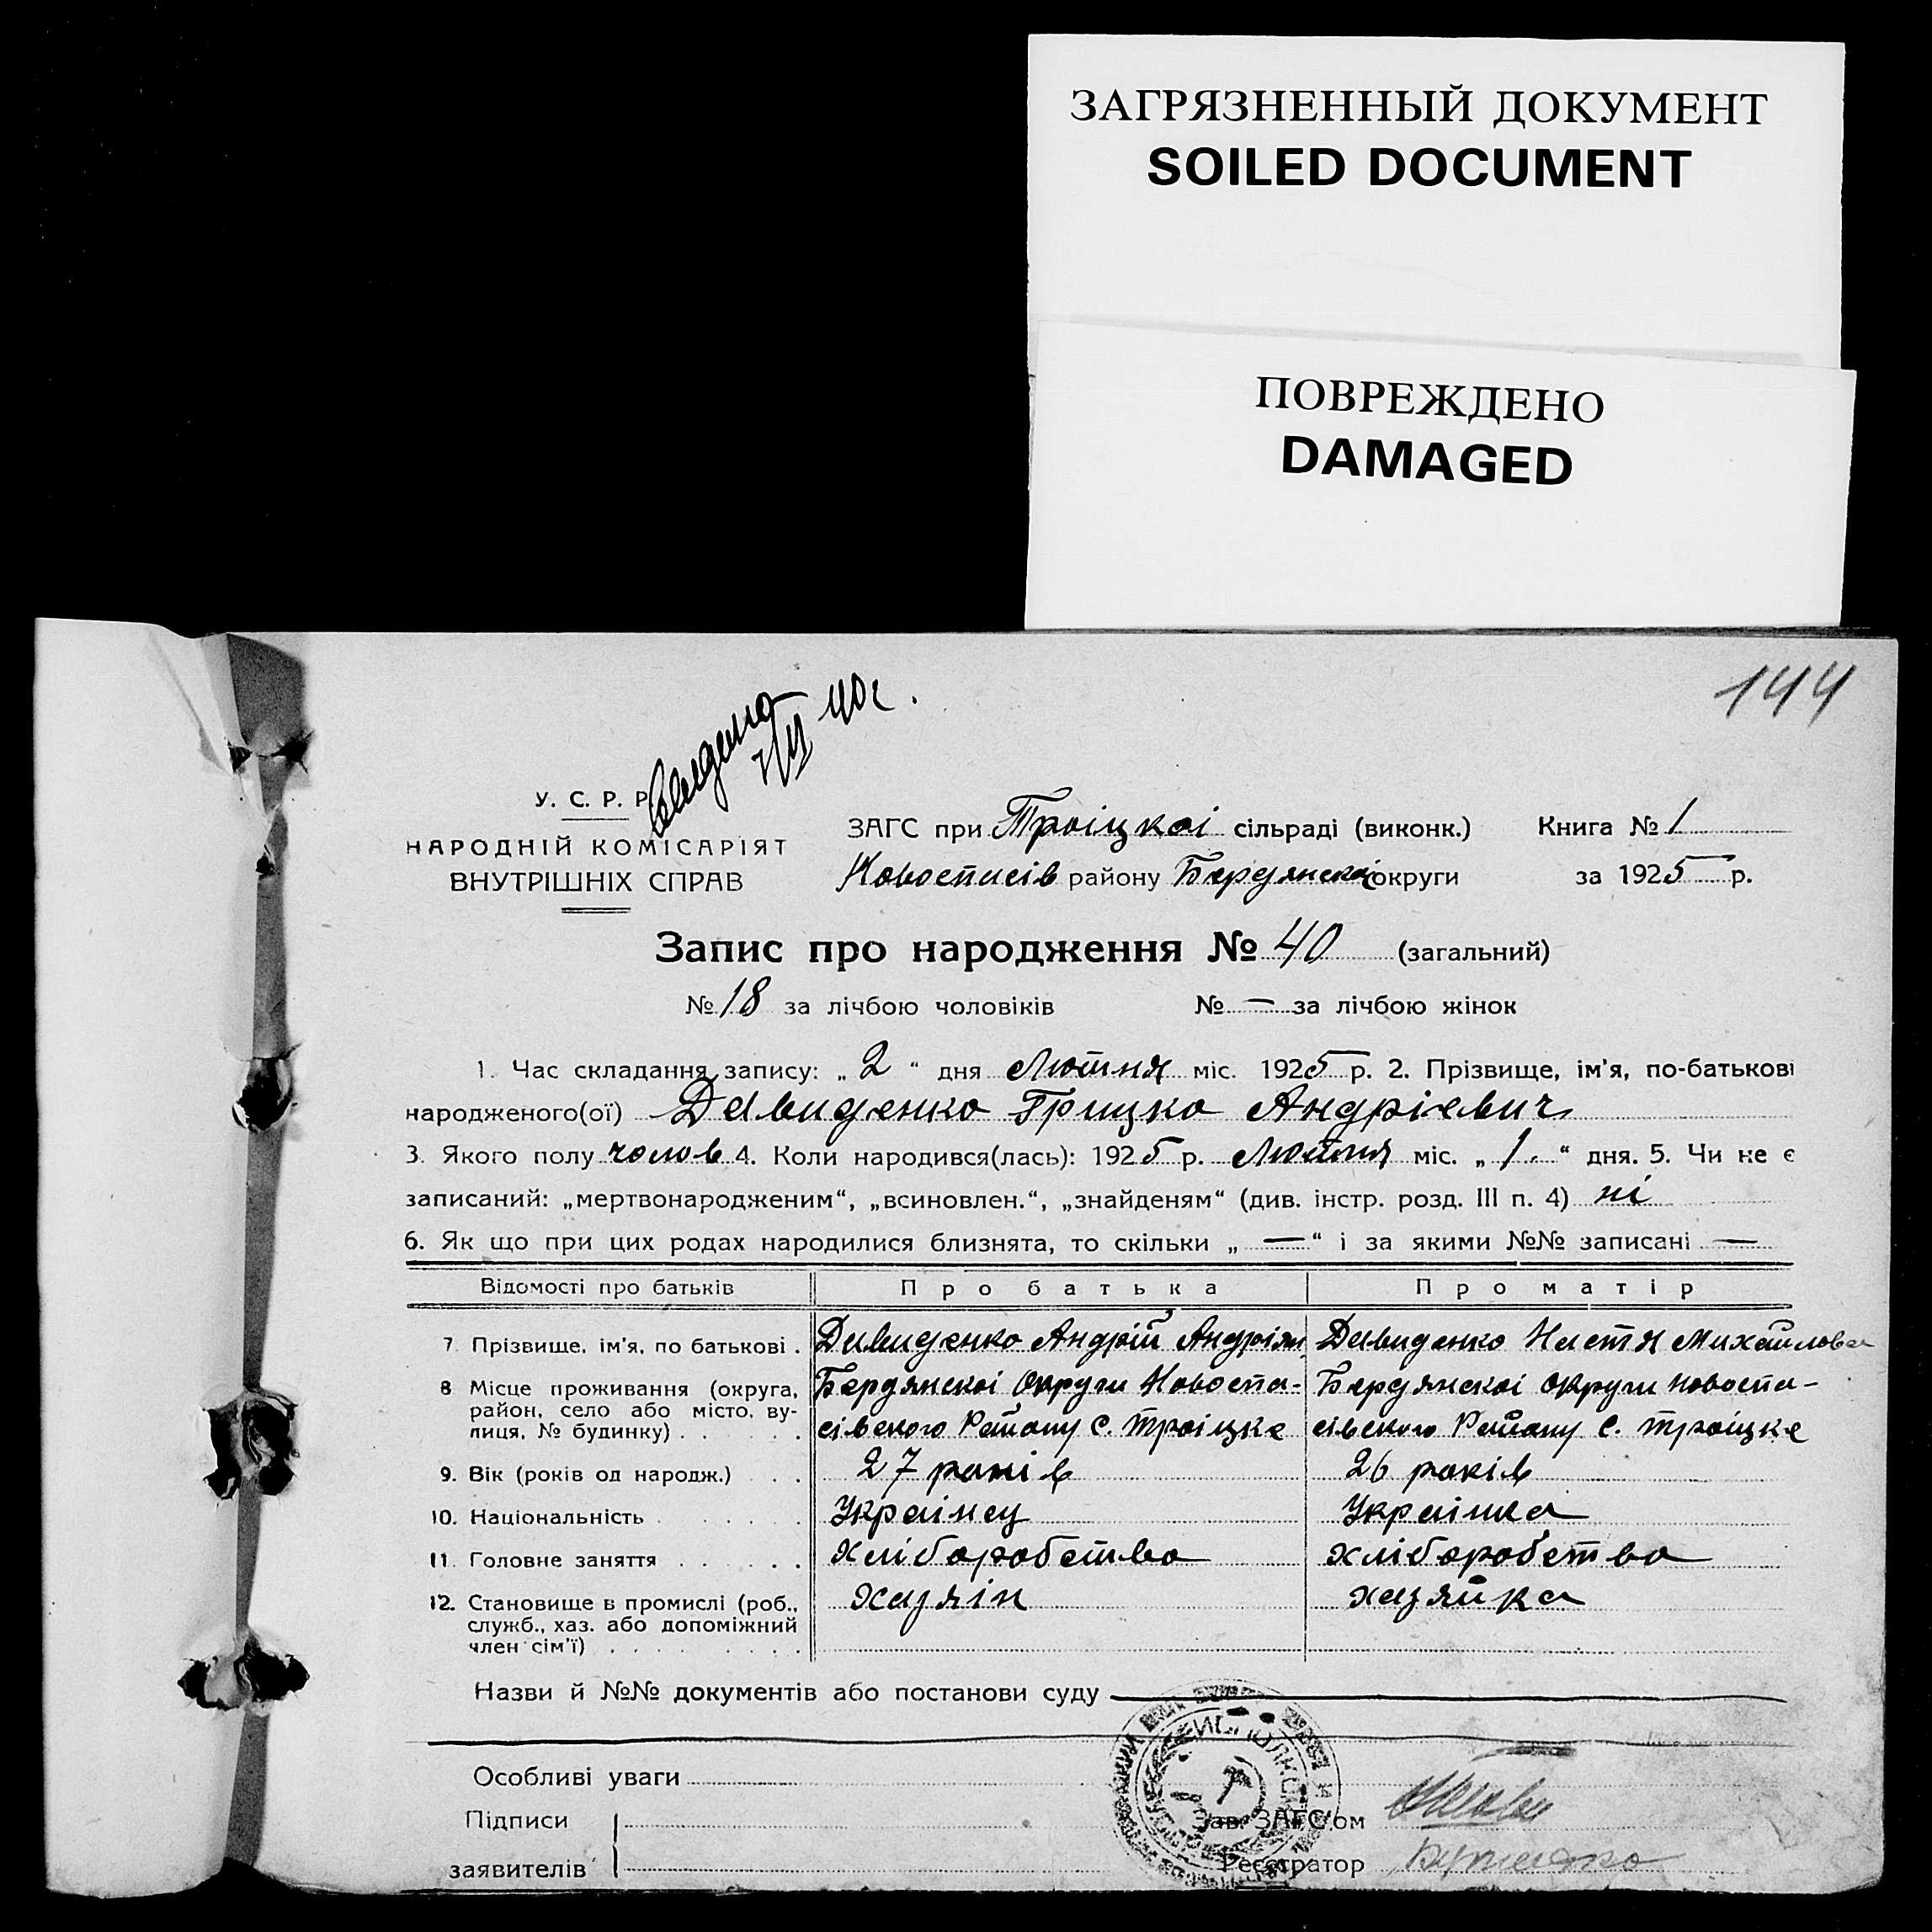 ЗАГРЯЗНЕННЫЙ ДОКУМЕНТ
SOILED DOCUMENT
ПОВРЕЖДЕНО
DAMAGED
144
40г.
У. С. Р. Р.
НАРОДНІЙ КОМІСАРІЯТ
ВНУТРІШНІХ СПРАВ
ЗАГС при Троіцкоі сільраді (виконк.) Книга № 1
Новоспасів району Бердянскоі округи за 1925 р.
Запис про народження № 40 (загальний)
№ 18 за лічбою чоловіків № — за лічбою жінок
1. Час складання запису: „ 2 “ дня Лютня міс. 1925 р. 2. Прізвище, ім'я, по-батькові
народженого(ої) Давиденко Грицко Андріевич
3. Якого полу чолов 4. Коли народився(лась): 1925 р. Лютня міс. „ 1 “ дня. 5. Чи не є
записаний: „мертвонародженим“, „всиновлен.“, „знайденям“ (див. інстр. розд. III п. 4) ні
6. Як що при цих родах народилися близнята, то скільки „ — “ і за якими №№ записані —
Відомості про батьків Про батька Про матір
7. Прізвище, ім'я, по батькові . Давиденко Андрій Андріяи Давиденко Настя Михайлова
8. Місце проживання (округа, Бердянскоі Округи Новоспа- Бердянскоі Округи Новоспа-
район, село або місто, ву- сівского Району С. Троіцке сівского Району С. Троіцке
лиця, № будинку) . . . . .
9. Вік (років од народж.) . . 27 років 26 років
10. Національність . . . . . . Украінец Украінка
11. Головне заняття . . . . . хліборобство хліборобство
12. Становище в промислі (роб., хазяін хазяйка
служб., хаз. або допоміжний
член сім'ї) . . . . . . . .
Назви й №№ документів або постанови суду —
Особливі уваги
Підписи
заявителів
Зав. ЗАГС'ом
Реєстратор